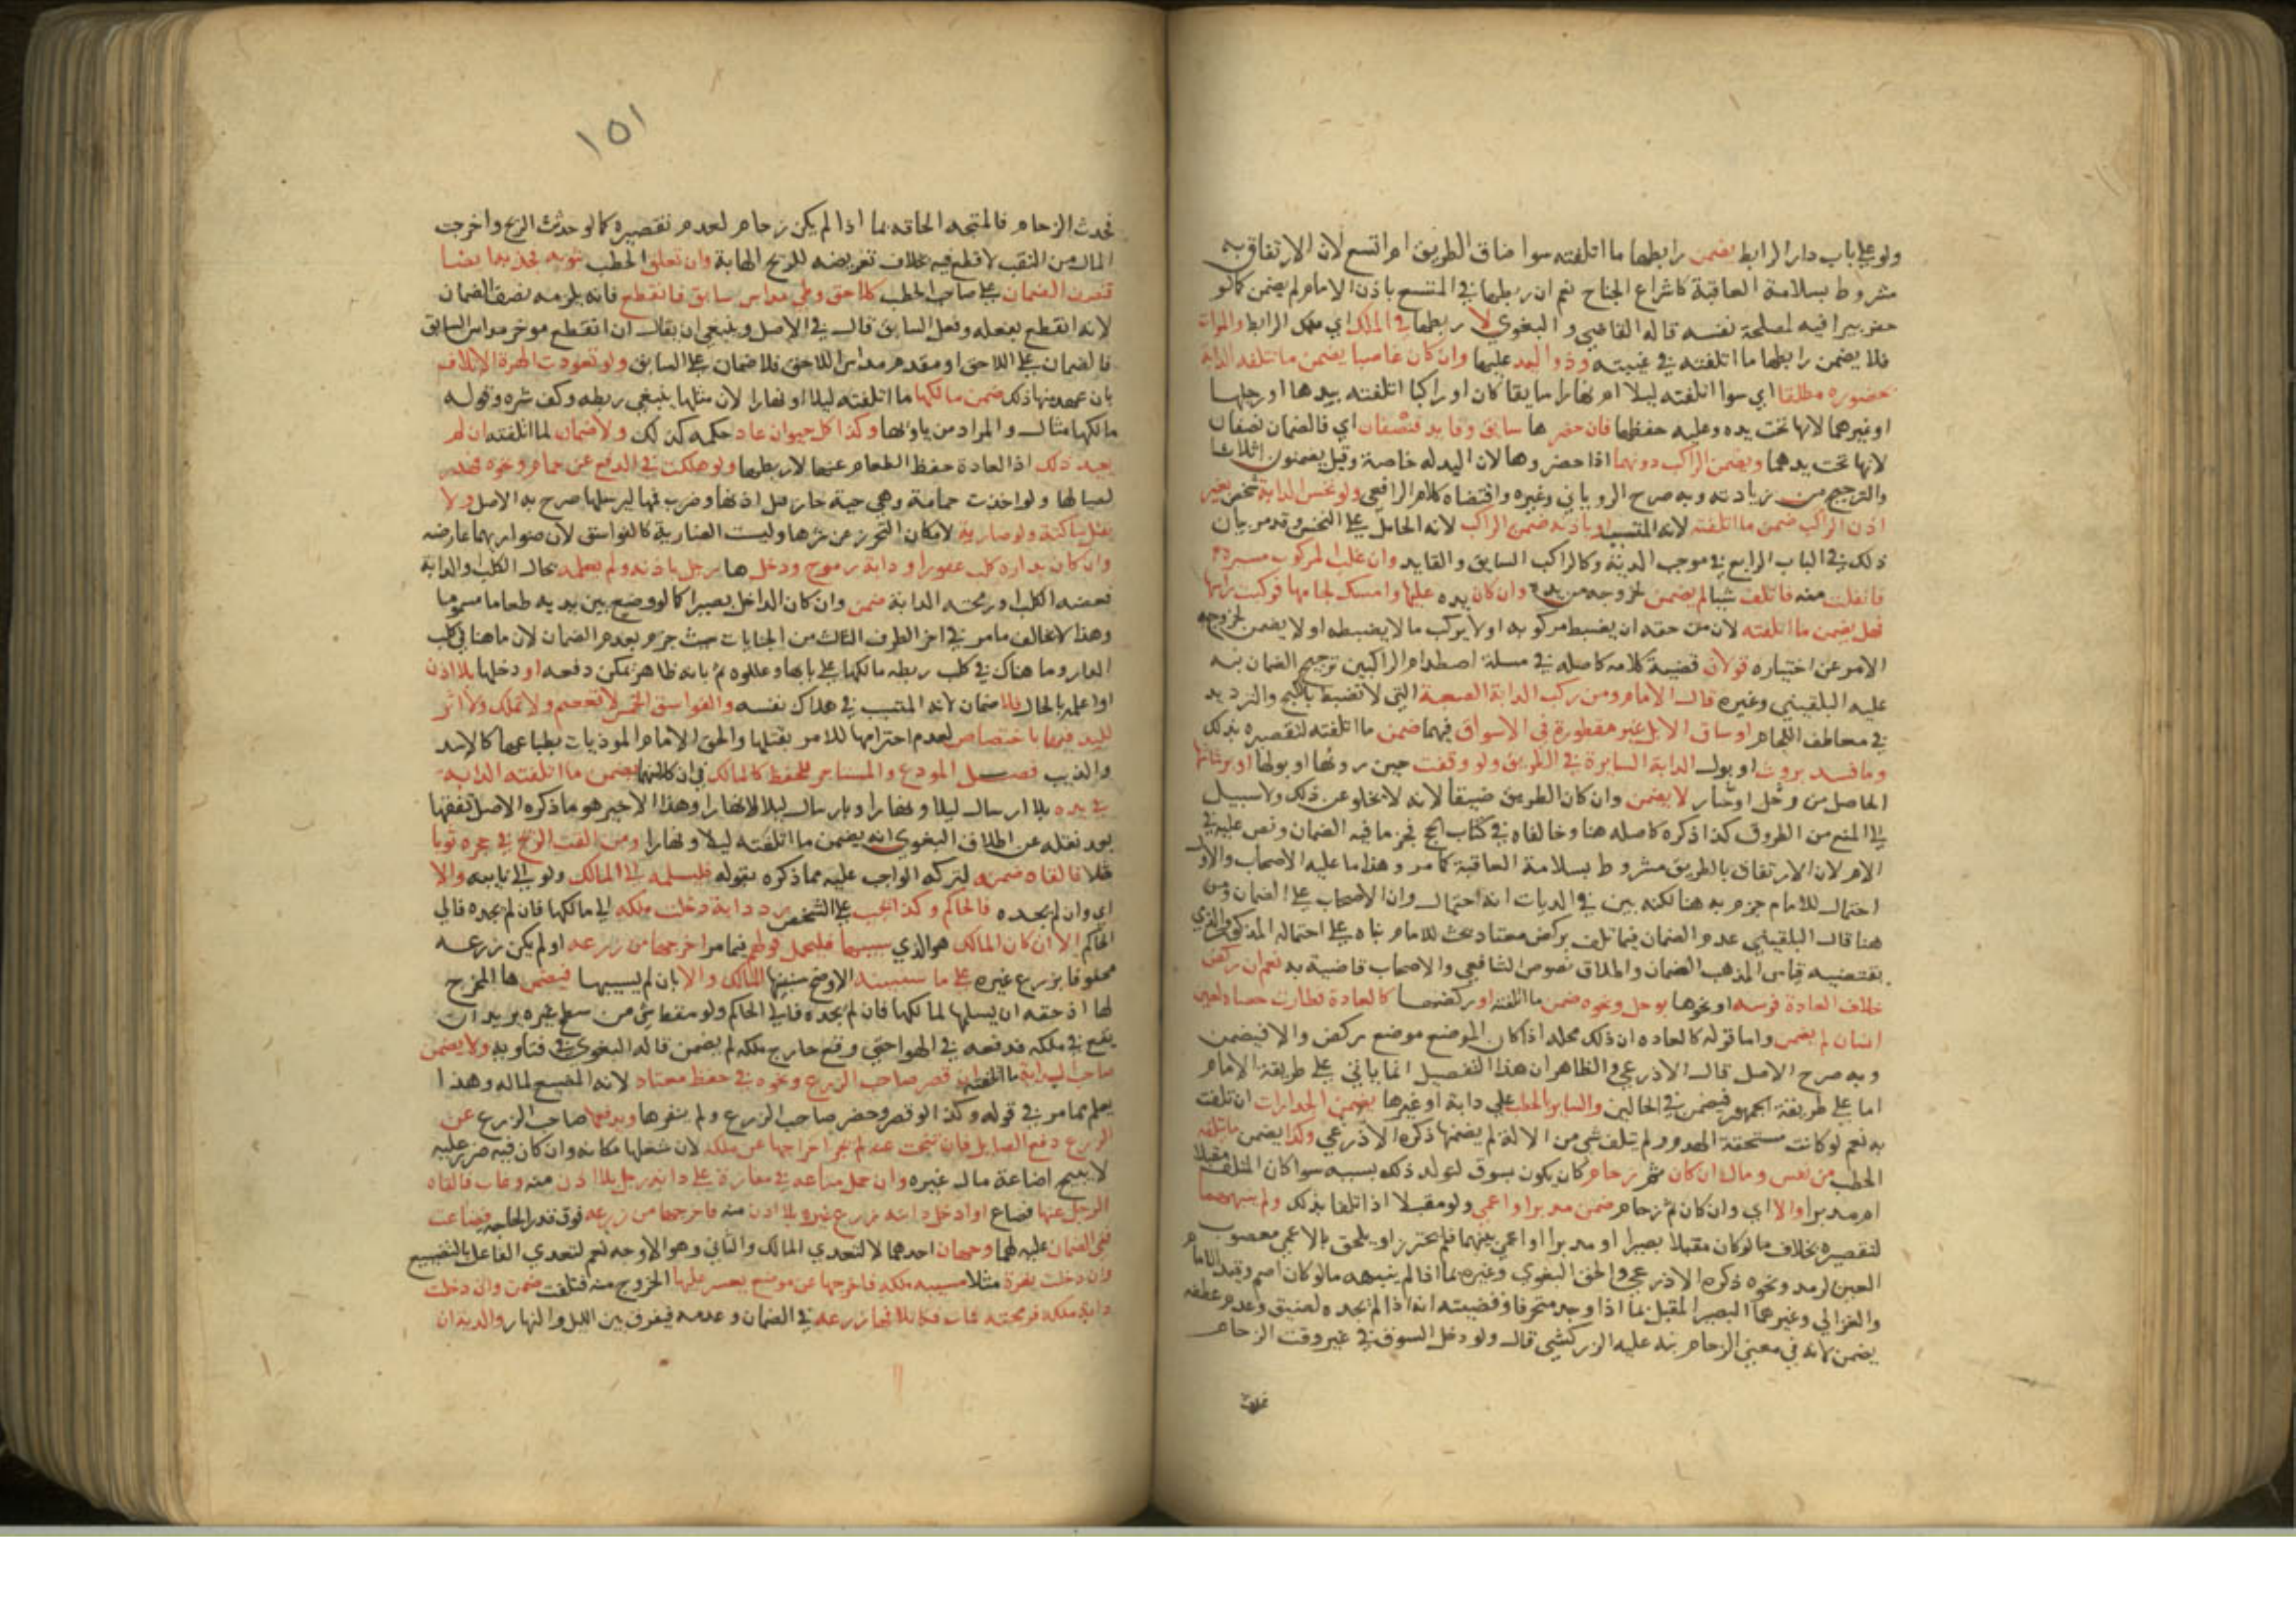 ولو على باب دار الرابط يضمن رابطها ما اتلفته سوا ضاق الطريق ام اتسع لان الارتفاق به
مشروط بسلامة العاقبة كاشراع الجناح نعم ان ربطها في المتسع باذن الامام لم يضمن كما لو
حفر بيرا فيه لمصلحة نفسه قاله القاضي والبغوي لا ربطها في الملك اي ملك الرابط والموات
فلا يضمن رابطها ما اتلفته في غيبته وذو اليد عليها وان كان غاصبا يضمن ما تتلفه الدابة
بحضوره مطلقا اي سوا اتلفته ليلا ام نهارا سايقا كان او راكبا اتلفته بيدها او رجلها
او غيرهما لانها تحت يده وعليه حفظها فان حضرها سايق وقايد فنصفان اي فالضمان نصفان
لانها تحت يدهما ويضمن الراكب دونهما اذا حضروها لان اليد له خاصة وقيل يضمنون اثلاثا
والترجيح من زيادته وبه صرح الروياني وغيره واقتضاه كلام الرافعي ولو نخس الدابة شخص بغير
اذن الراكب ضمن ما اتلفته لانه المتسبب او باذنه ضمن الراكب لانه الحامل على النخس وقد مر بيان
ذلك في الباب الرابع في موجب الدية وكالراكب السايق والقايد وان غلب المركوب مسيره
فانفلت منه فاتلف شيا لم يضمن لخروجه من يده وان كان يده عليها وامسك لجامها فركبت راسها
فهل يضمن ما اتلفته لان من حقه ان يضبط مركوبه او لا يركب ما لا يضبطه او لا يضمن لخروج
الامر عن اختياره قولان قضية كلامه كاصله في مسلة اصطدام الراكبين ترجيح الضمان نبه
عليه البلقيني وغيره قال الامام ومن ركب الدابة الصعبة التي لا تضبط بالكبح والترديد
في معاطف اللجام او ساق الابل غير مقطورة في الاسواق فيهما ضمن ما اتلفته لتقصيره بذلك
وما فسد بروث او بول الدابة السايرة في الطريق ولو وقفت حين روثها او بولها او برشاشها
الحاصل من وحل او غبار لا يضمن وان كان الطريق ضيقا لانه لا يخلو عن ذلك ولا سبيل
الى المنع من الطروق كذا ذكره كاصله هنا وخالفاه في كتاب الحج فجزما فيه الضمان ونص عليه في
الام لان الارتفاق بالطريق مشروط بسلامة العاقبة كما مر وهذا ما عليه الاصحاب والاول
احتمال للامام جزم به هنا لكنه بين في الديات انه احتمال وان الاصحاب على الضمان ومن
هنا قال البلقيني عدم الضمان فيما تلف بركض معتاد بحث للامام بناه على احتماله المذكور والذي
يقتضيه قياس المذهب الضمان واطلاق نصوص الشافعي والاصحاب قاضية به نعم ان ركض
خلاف العادة فرسه او نحوها بوحل ونحوه ضمن ما اتلفته او ركضها كالعادة فطارت حصاة لعين
انسان لم يضمن واما قوله كالعادة ان ذلك محله اذا كان الموضع موضع ركض والا فيضمن
وبه صرح الاصل قال الاذرعي والظاهر ان هذا التفصيل انما ياتي على طريقة الامام
اما على طريقة الجمهور فيضمن في الحالين والساير بالحطب على دابة او غيرها يضمن الجدارات ان تلفت
به نعم لو كانت مستحقة الهدم ولم يتلف شي من الالة لم يضمنها ذكره الاذرعي وكذا يضمن ما يتلفه
الحطب من نفس ومال ان كان ثم زحام كان يكون بسوق لتولد ذلك بسببه سوا كان المتلف مقبلا
ام مدبرا والا اي وان لم يكن ثم زحام ضمن مدبرا او اعمى ولو مقبلا اذا تلفا بذلك ولم ينبههما
لتقصيره بخلاف ما لو كان مقبلا بصيرا او مدبرا او اعمى نبههما فلم يحترز او يلحق بالاعمى معصوب
العين لرمد ونحوه ذكره الاذرعي والحق البغوي وغيره بما اذا لم ينبهه ما لو كان اصم وقيد الامام
والغزالي وغيرهما البصير المقبل بما اذا وجد منحرفا وقضيته انه اذا لم يجده لضيق وعدم عطفه
يضمن لانه في معنى الزحام نبه عليه الزركشي قال ولو دخل السوق في غير وقت الزحام
١٥١
فحدث الزحام فالمتجه الحاقه بما اذا لم يكن زحام لعدم تقصيره كما لو حدثت الريح واخرجت
المال من النقب لا قطع فيه بخلاف تعريضه للريح الهابة وان تعلق الحطب بثوبه فجذبها نصفا
الضمان على صاحب الحطب كلاحق وطي مداس سابق فانقطع فانه يلزمه نصف الضمان
لانه انقطع بفعله وفعل السابق قال في الاصل وينبغي ان يقال ان انقطع موخر مداس السابق
فالضمان على اللاحق او مقدم مداس اللاحق فلا ضمان على السابق ولو تعودت الهرة الاتلاف
بان عهد منها ذلك ضمن مالكها ما اتلفته ليلا او نهارا لان مثلها ينبغي ربطه وكف شره وقوله
مالكها مثال والمراد من ياويها وكذا كل حيوان عاد حكمه كذلك ولا ضمان لما اتلفته ان لم
يعهد ذلك اذ العادة حفظ الطعام عنها لا ربطها ولو هلكت في الدفع عن حمام ونحوه فهدر
لصيالها ولو اخذت حمامة وهي حية جاز فتل اذنها وضرب فمها لترسلها صرح به الاصل ولا
يقتل ساكنة ولو ضارية لامكان التحرز عن شرها وليست الضارية كالفواسق لان ضراوتها عارضة
وان كان بداره كلب عقور او دابة رموح ودخلها رجل باذنه ولم يعلمه بحال الكلب والدابة
فعضه الكلب او رمحته الدابة ضمن وان كان الداخل بصيرا كما لو وضع بين يديه طعاما مسموما
وهذا لا يخالف ما مر في اخر الطرف الثالث من الجنايات حيث جزم بعدم الضمان لان ما هنا في كلب
الدار وما هناك في كلب ربطه مالكها على بابها وعللوه ثم بانه ظاهر يمكن دفعه او دخلها بلا اذن
او اعلمه بالحال فلا ضمان لانه المتسبب في هلاك نفسه والفواسق الخمس لا تعصم ولا تملك ولا اثر
لليد فيها باختصاص لعدم احترامها للامر بقتلها والحق الامام الموذيات بطباعها كالاسد
والذيب فصل المودع والمستاجر للحفظ كالمالك في ان كلا منهما يضمن ما اتلفته الدابة
في يده بلا ارسال ليلا ونهارا وبارسال ليلا لا نهارا وهذا الاخير هو ما ذكره الاصل تفقها
بعد نقله عن اطلاق البغوي انه يضمن ما اتلفته ليلا ونهارا ومن القت الريح في حجره ثوبا
مثلا فالقاه ضمنه لتركه الواجب عليه مما ذكره بقوله فليسلمه الى المالك ولو الى نايبه والا
اي وان لم يجده فالحاكم وكذا يجب على الشخص رد دابة دخلت ملكه الى مالكها فان لم يجده فالى
الحاكم الا ان كان المالك هو الذي سيبها فليحمل قولهم فيما مر اخرجها من زرعه او لم يكن زرعه
محفوفا بزرع غيره على ما سيبه المالك والا بان لم يسيبها فيضمنها المخرج
لها اذ حقه ان يسلمها لمالكها فان لم يجده فالى الحاكم ولو سقط شي من سطح غيره يريد ان
يقع في ملكه فدفعه في الهوا حتى وقع خارج ملكه لم يضمن قاله البغوي في فتاويه ولا يضمن
صاحب الدابة ما اتلفته ان قصر صاحب الزرع ونحوه في حفظ معتاد لانه المضيع لماله وهذا
يعلم مما مر في قوله وكذا لو قصر وحضر صاحب الزرع ولم ينفرها ويدفعها صاحب الزرع عن
الزرع دفع الصايل فان تنحت عنه لم يجز اخراجها عن ملكه لان شغلها مكانه وان كان فيه ضرر عليه
لا يبيح اضاعة مال غيره وان حمل متاعه في مفازة على دابة رجل بلا اذن منه وغاب فالقاه
الرجل عنها فضاع او ادخل دابته زرع غيره بلا اذن منه فاخرجها من زرعه فوق قدر الحاجة فضاعت
ففي الضمان عليه لهما وجهان احدهما لا لتعدي المالك والثاني وهو الاوجه نعم لتعدي الفاعل بالتضييع
وان دخلت بقرة مثلا مسيبة ملكه فاخرجها عن موضع يعسر عليها الخروج منه فتلفت ضمن وان دخلت
دابة ملكه فرمحته فمات فكاتلافها زرعه في الضمان وعدمه فيفرق بين الليل والنهار والدية ان